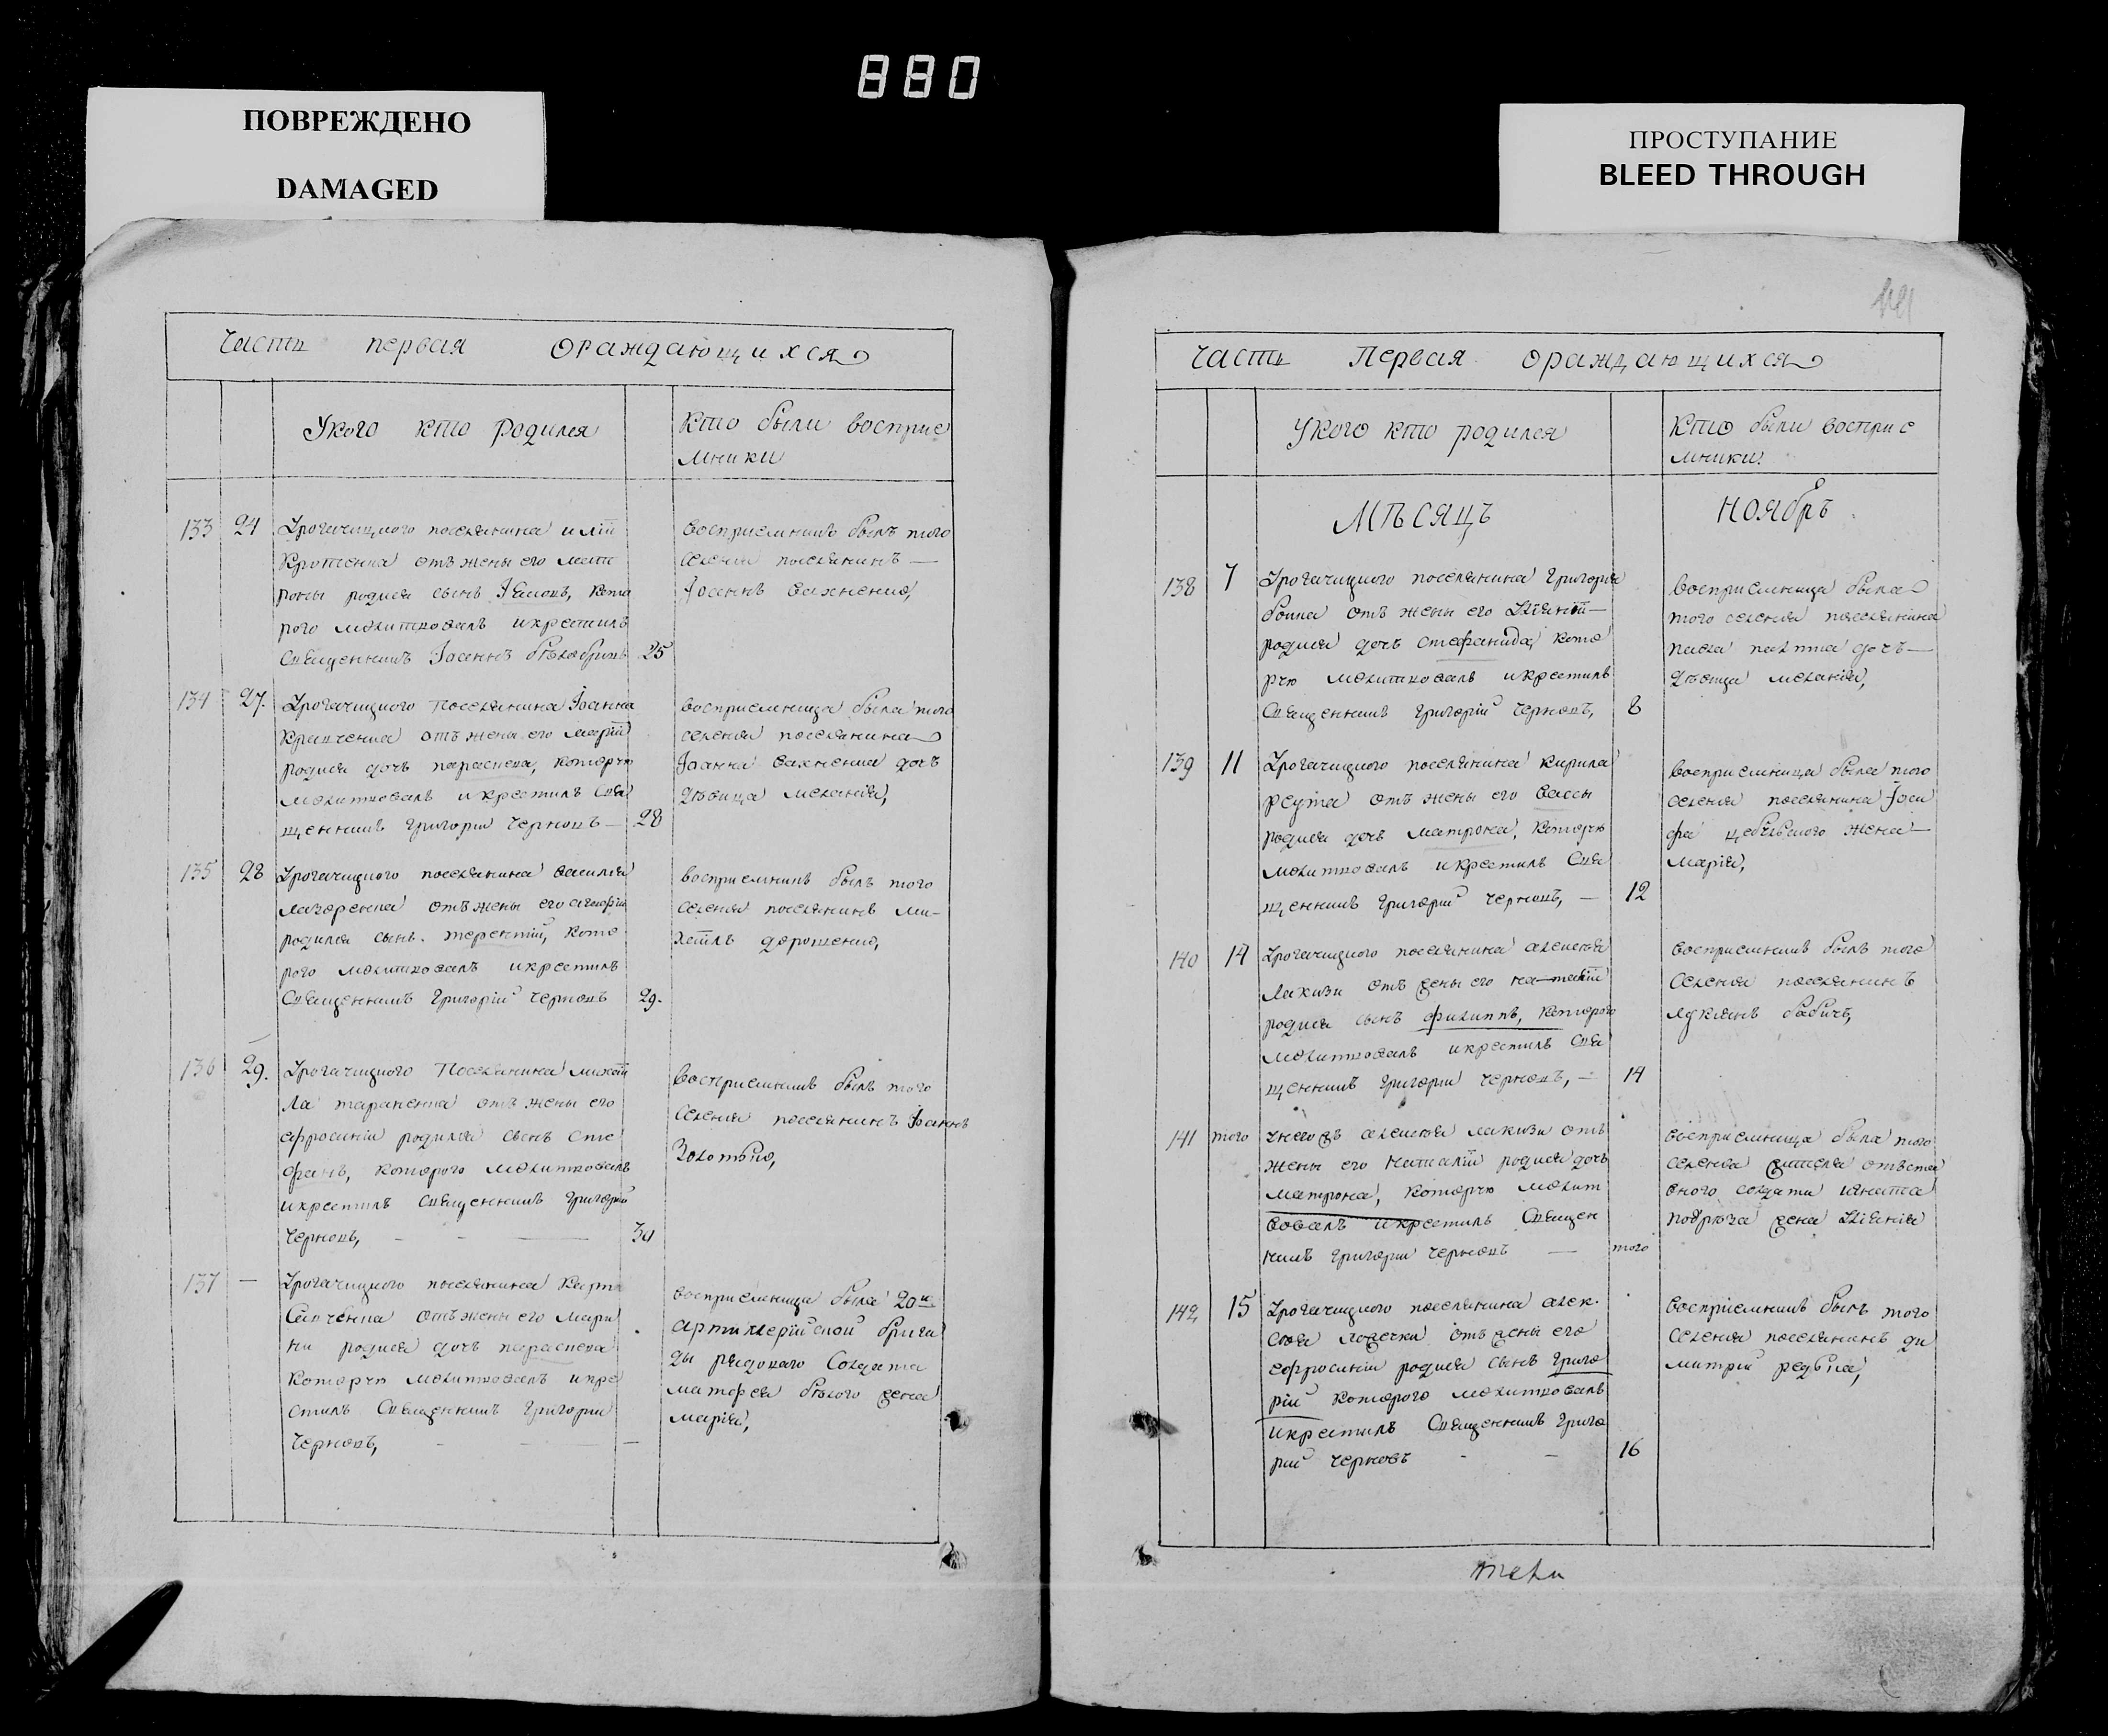 880
ПОВРЕЖДЕНО
DAMAGED
ПРОСТУПАНИЕ
BLEED THROUGH
Часть первая ораждающихся
Укого кто родился
Кто были восприе
мники
133 24 Урогачицкого поселянина
отъ жены его мат
роны родися сынъ Іаковъ, кото
рого молитвовалъ икрестилъ
Священникъ Іоаннъ 25
восприемникъ былъ того
селения поселянинъ —
Іоаннъ Вахненко,
134 27. Урогачицкого Поселянина Іоанна
Кравченка отъ жены его Маріи
родися дочъ параскева, которую
молитвовалъ икрестилъ Свя
щенникъ Григорий Черновъ — 28
восприемница была того
селения поселянина
Іоанна Вахненка дочь
дѣвица Меланія,
135 28 Урогачицкого поселянина василия
лазоренка отъ жены его агафіи
родился сынъ. терентий, кото
рого молитвовалъ икрестилъ
Священникъ Григорій Черновъ 29.
восприемникъ былъ того
селения поселянинъ ми-
хаилъ дорошенко,
136 29. Урогачицкого Поселянина михаи
ла тараненка отъ жены его
ефросиніи родился сынъ сте
фанъ, которого молитвовалъ
икрестилъ Священникъ Григорий
Черновъ, — 30
Восприемникъ былъ того
Селения поселянинъ Іоаннъ
137 — Урогачицкого поселянина Карпа
Савченка отъ жены его Мари
ни родися дочъ параскева
Которую молитвовалъ икре
стилъ Священникъ Григорий
Черновъ, — —
восприемница была 20й
артиллерійской брига
ды рядового Солдата
матфея бѣлого жена
марія,
44
Часть Первая ораждающихся
Укого кто родился
Кто были восприе
мники.
Мѣсяцъ
Ноябрь
138 7 Урогачицкого поселянина Григория
отъ жены его —
родися дочъ стефанида, кото
рую молитвовалъ икрестилъ
Священникъ Григорій Черновъ, 8
Восприемница была
того селения поселянина
павла дочъ —
дѣвица меланія,
139 11 Урогачицкого поселянина кирила
реута отъ жены его вассы
родися дочъ матрона, которую
молитвовалъ икрестилъ Свя
щенникъ Григорий Черновъ, — 12
Восприемница была того
селения поселянина Іоси
фа жена —
марія,
140 14 Урогачицкого поселянина алексея
Лакизи отъ жены его наталіи
родися сынъ филиппъ, которого
молитвовалъ икрестилъ Свя
щенникъ Григорій Черновъ, — 14
Восприемникъ былъ того
Селения поселянинъ
лукіянъ бабичъ,
141 того унегожъ алексея лакизи отъ
жены его Наталіи родися дочь
матрона, которую молит
вовалъ икрестилъ Священ
никъ Григорій Черновъ — того
Восприемница была того
селения жителя отстав
ного солдата игната
жена
142 15 Урогачицкого поселянина алек
сея отъ жены его
ефросиніи родися сынъ григо
рій которого молитвовалъ
икрестилъ Священникъ Григо
рий Черновъ — 16
Восприемникъ былъ того
Селения поселянинъ ди
митрій редька,